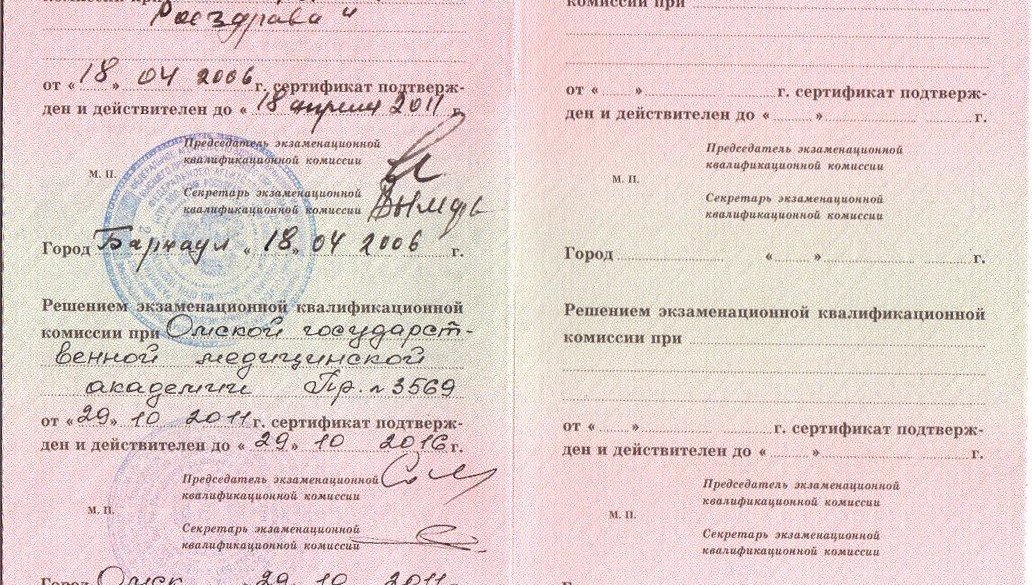 комиссии при
Росздрава"
от «18» 04 2006 г. сертификат подтверж-
ден и действителен до «18 апреля 2011 г.
Председатель экзаменационной
квалификационной комиссии
М. П.
Секретарь экзаменационной
квалификационной комиссии
Город Барнаул «18» 04 2006 г.
Решением экзаменационной квалификационной
комиссии при Омской государст-
венной медицинской
академии Пр. № 3569
от «29» 10 2011 г. сертификат подтверж-
ден и действителен до «29» 10 2016 г.
Председатель экзаменационной
квалификационной комиссии
М. П.
Секретарь экзаменационной
квалификационной комиссии
Город Омск 29 10 2011
комиссии при
от « » г. сертификат подтверж-
ден и действителен до « » г.
Председатель экзаменационной
квалификационной комиссии
М. П.
Секретарь экзаменационной
квалификационной комиссии
Город « » г.
Решением экзаменационной квалификационной
комиссии при
от « » г. сертификат подтверж-
ден и действителен до « » г.
Председатель экзаменационной
квалификационной комиссии
М. П.
Секретарь экзаменационной
квалификационной комиссии